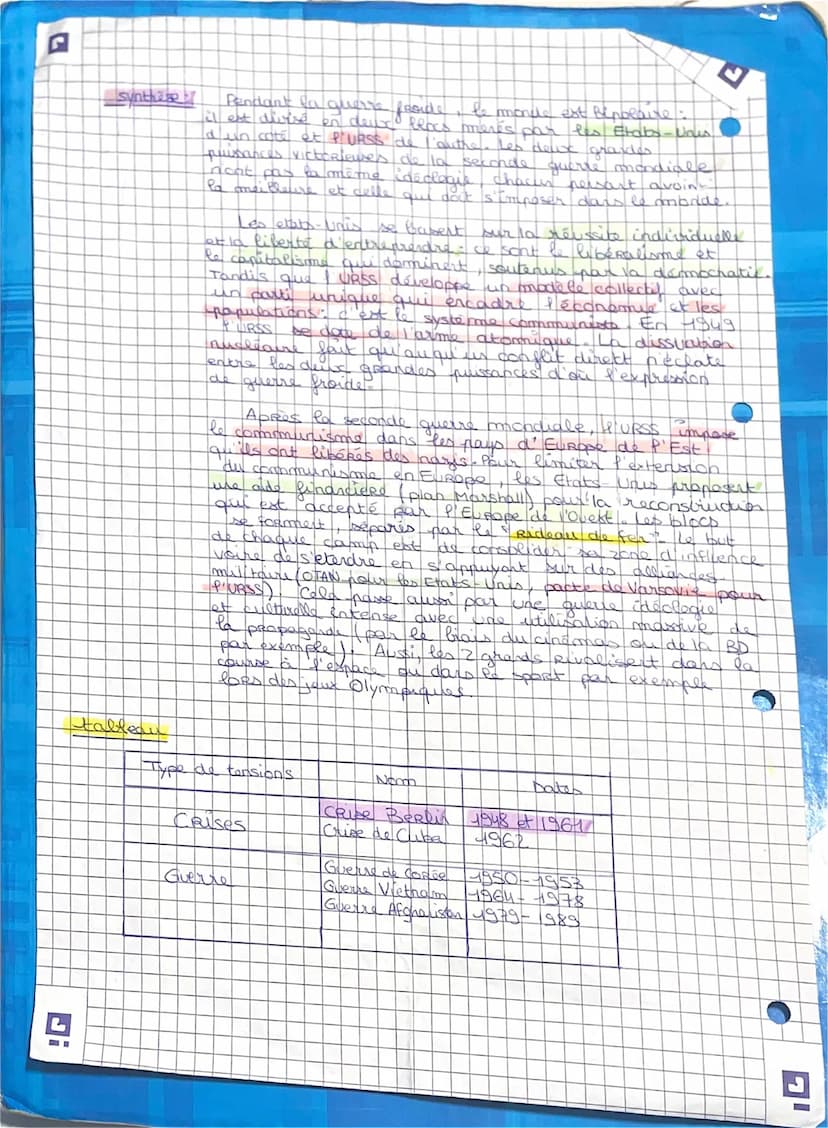 synthèse :
Pendant la guerre froide, le monde est Bipolaire :
il est divisé en deux blocs menés par les Etats-Unis
d'un coté et l'URSS de l'autre. Les deux grandes
puissances victorieuses de la seconde guerre mondiale
n'ont pas la même idéologie, chacun pensant avoir
la meilleure et celle qui doit s'imposer dans le monde.
Les etats-Unis se basent sur la réussite individuelle
et la liberté d'entreprendre : ce sont le libéralisme et
le capitalisme qui dominent, soutenus par la démochatie.
Tandis que l'URSS développe un modèle collectif avec
un parti unique qui encadre l'économie et les
populations : c'est le système communiste. En 1949
l'URSS se dote de l'arme atomique. La dissuation
nucléaire fait qu'auqu'un conflit direkt n'éclate
entre les deux grandes puissances d'où l'expression
de guerre froide.
Après la seconde guerre mondiale, l'URSS impose
le communisme dans les pays d'Europe de l'Est
qu'ils ont libérés des nazis. Pour limiter l'extension
du communisme en Europe, les Etats-Unis proposent
une aide financière (plan Marshall) pour la reconstruction
qui est accepté par l'Europe de l'Ouest. Les blocs
se forment, séparés par le "Rideau de fer". Le but
de chaque camp est de consolider sa zone d'influence
voire de s'etendre en s'appuyant sur des alliances
militaire (OTAN pour les Etats-Unis, pacte de Varsovie pour
l'URSS). Cela passe aussi par une guerre idéologie
et culturelle intense avec une utilisation massive de
la propagande (par le biais du cinémas ou de la BD
par exemple). Aussi, les 2 grands rivalisent dans la
course à l'espace ou dans le sport par exemple
lors des jeux Olympiques.
tableau
Type de tensions Nom Dates
Crises Crise Berlin 1948 et 1961
Crise de Cuba 1962
Guerre Guerre de Corée 1950-1953
Guerre Vietnam 1964-1978
Guerre Afghanistan 1979-1989